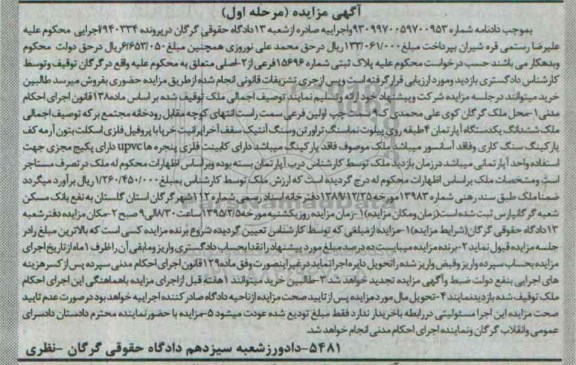 آگهی مزایده (مرحله اول)
بموجب دادنامه شماره ۹۳۰۹۹۷۰۰۵۹۷۰۰۹۵۳ واجراییه صادره از شعبه ۱۳ دادگاه حقوقی گرگان درپرونده ۹۴۰۳۳۴ اجرایی محکوم علیه
علیرضا رستمی قره شیران بپرداخت مبلغ ۱۳۳/۰۶۱/۰۰۰ ریال درحق محمد علی نوروزی همچنین مبلغ ۶/۶۵۳/۰۵۰ ریال درحق دولت محکوم
وبدهکار می باشند حسب درخواست محکوم علیه پلاک ثبتی شماره ۱۵۶۹۶ فرعی از ۲-اصلی متعلق به محکوم علیه واقع در گرگان توقیف وتوسط
کارشناس دادگستری بازدید ومورد ارزیابی قرار گرفته است وپس از جری تشریفات قانونی انجام شده از طریق مزایده حضوری بفروش میرسد طالبین
خرید میتوانند در جلسه مزایده شرکت وپیشنهاد خود ارائه وتسلیم نمایند توصیف اجمالی ملک توقیف شده بر اساس ماده ۱۳۸ قانون اجرای احکام
مدنی ۱-محل ملک گرگان کوی علی محمدی کد سمت چپ اولین فرعی سمت راست انتهای کوچه مقابل رودخانه مجتمع برکه توصیف اجمالی
ملک ششدانگ یکدستگاه آپارتمان ۴طبقه روی پیلوت نماسنگ تراورتن وسنگ آنتیک سقف آخر ایرانیت خرپا با پروفیل فلزی اسکلت بتون آرمه کف
پارکینگ سنگ کاری وفاقد آسانسور میباشد ملک موصوف فاقد پارکینگ میباشد دارای کابینت فلزی پنجره ها upvc دارای پکیج مجزی جهت
استفاده واحد آپارتمانی میباشد درزمان بازدید ملک توسط کارشناس درب آپارتمان بسته بوده وبر اساس اظهارات محکوم له ملک در تصرف مستاجر
است ومشخصات ملک بر اساس اظهارات محکوم له درج گردیده است که ارزش ملک توسط کارشناس بمبلغ ۱/۲۶۰/۴۵۰/۰۰۰ ریال برآورد میگردد
ضمنا ملک طبق سند رهنی شماره ۱۳۹۸۳ مورخه ۱۳۸۹/۱۲/۲۵ دفترخانه اسناد رسمی شماره ۱۱۲ شهر گرگان استان گلستان به نفع بانک مسکن
شعبه گرگانپارس ثبت شده است (زمان ومکان مزایده) ۱-زمان مزایده روز یکشنبه مورخه ۱۳۹۵/۲/۵ ساعت ۸:۳۰ الی ۹ صبح ۲-مکان مزایده دفترشعبه
۱۳ دادگاه حقوقی گرگان (شرایط مزایده) ۱-مزایده از مبلغی که توسط کارشناس تعیین گردیده شروع برنده مزایده کسی است که بالاترین مبلغ رادر
جلسه مزایده قبول نماید ۲-برنده مزایده میبایست ده درصد مبلغ مورد پیشنهاد را نقدا بحساب دادگستری واریز ومابقی آن را ظرف ۱ماه از تاریخ اجرای
مزایده بحساب سپرده واریز وقبض واریز شده را تحویل دایره اجرا نماید در غیر اینصورت وفق ماده ۱۲۹ قانون اجرای احکام مدنی سپرده پس از کسر هزینه
های اجرایی بنفع دولت ضبط و آگهی مزایده تجدید خواهد شد ۳-طالبین خرید میتوانند ۱هفته قبل از اجرای مزایده باهماهنگی این اجرای احکام
ملک توقیف شده بازدید نمایند ۴-تحویل مال مورد مزایده پس از تایید صحت مزایده از ناحیه دادگاه صادر کننده اجراییه خواهد بود در صورت عدم تایید
صحت مزایده این اجرا مسئولیتی در رابطه با خریدار ندارد فقط مبلغ تودیع شده عودت میشود ۵-مزایده با حضور نماینده محترم دادستان دادسرای
عمومی وانقلاب گرگان ونماینده اجرای احکام مدنی انجام خواهد شد.
۵۴۸۱-دادورزشعبه سیزدهم دادگاه حقوقی گرگان -نظری